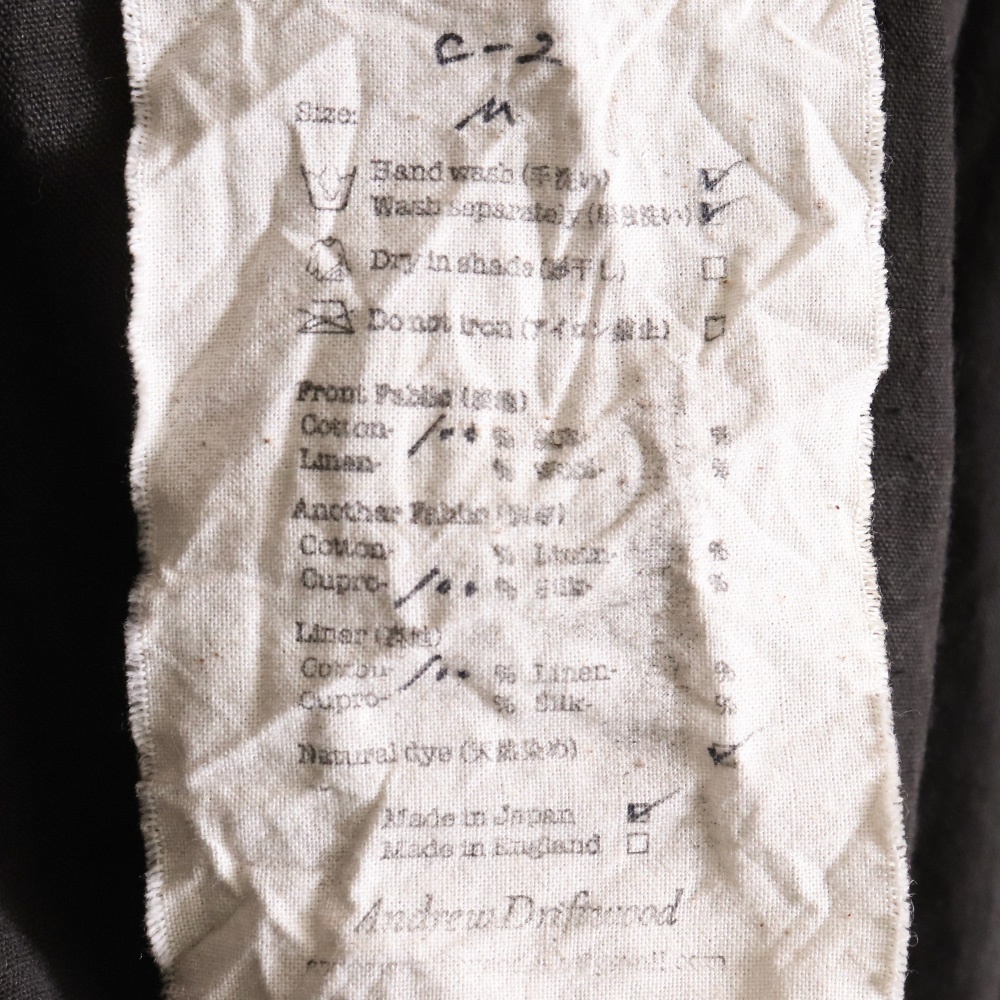 C-2
Size: M
Hand wash (手洗い)
Wash separately
Dry in shade (陰干し)
Do not iron (アイロン禁止)
Front Fabric
Cotton- 100 % %
Linen- % Wool- %
Another Fabric
Cotton- % Linen- %
Cupro- 100 % Silk- %
Liner
Cotton- 100 % Linen- %
Cupro- % Silk- %
Natural dye (天然染め)
Made in Japan
Made in England
Andrew Driftwood